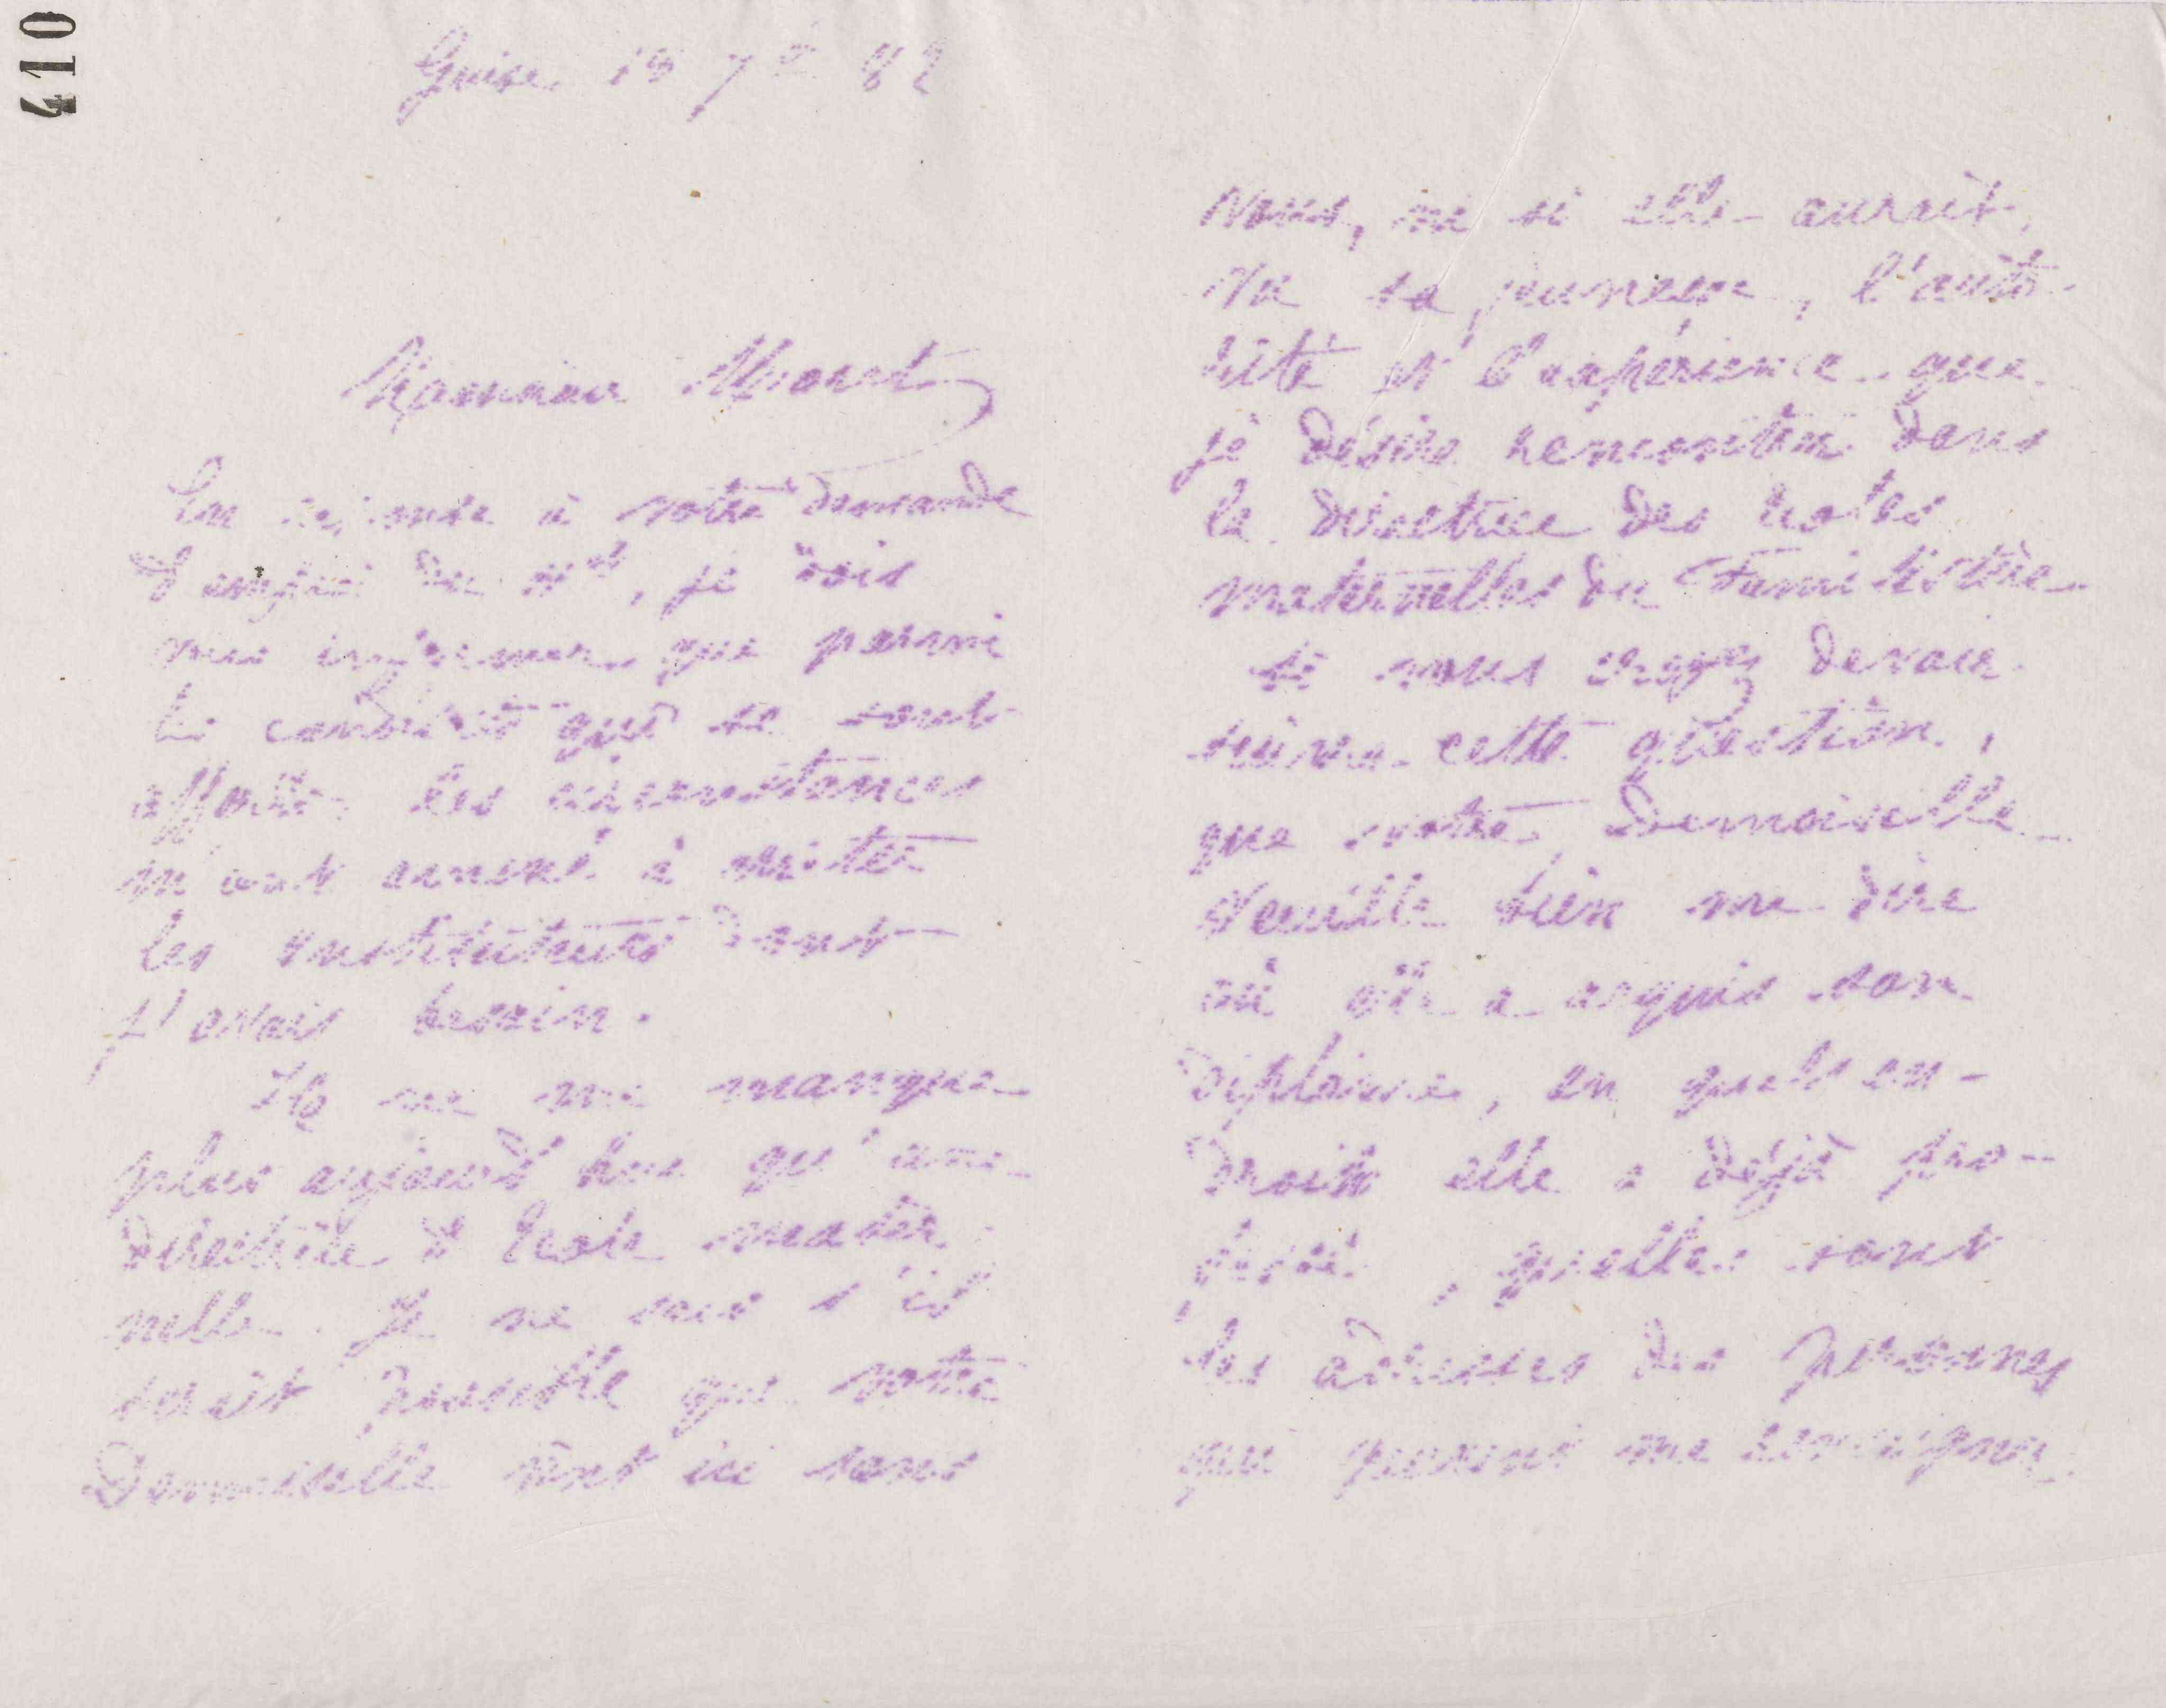 410
Guise 18 7e 82
Monsieur
En réponse à votre demande
d'emploi du, je dois
vous informer que parmi
les candidats qui se sont
offerts les circonstances
m'ont amené à traiter
les instituteurs dont
j'avais besoin.
Il ne me manque
plus aujourd'hui qu'une
directrice d'Ecole mater
nelle. Je ne sais s'il
serait possible que votre
Demoiselle vint ici sans
vous, ni si elle aurait,
vu sa jeunesse, l'auto-
rité et l'expérience que
je désire rencontrer dans
la directrice des écoles
maternelles du Familistère
Si vous croyez devoir
suivre cette question,
que votre Demoiselle
veuille bien me dire
où elle a acquis son
diplôme, en quels en-
droits elle a déjà pro-
fessé, quelles sont
les adresses des personnes
qui peuvent me renseigner